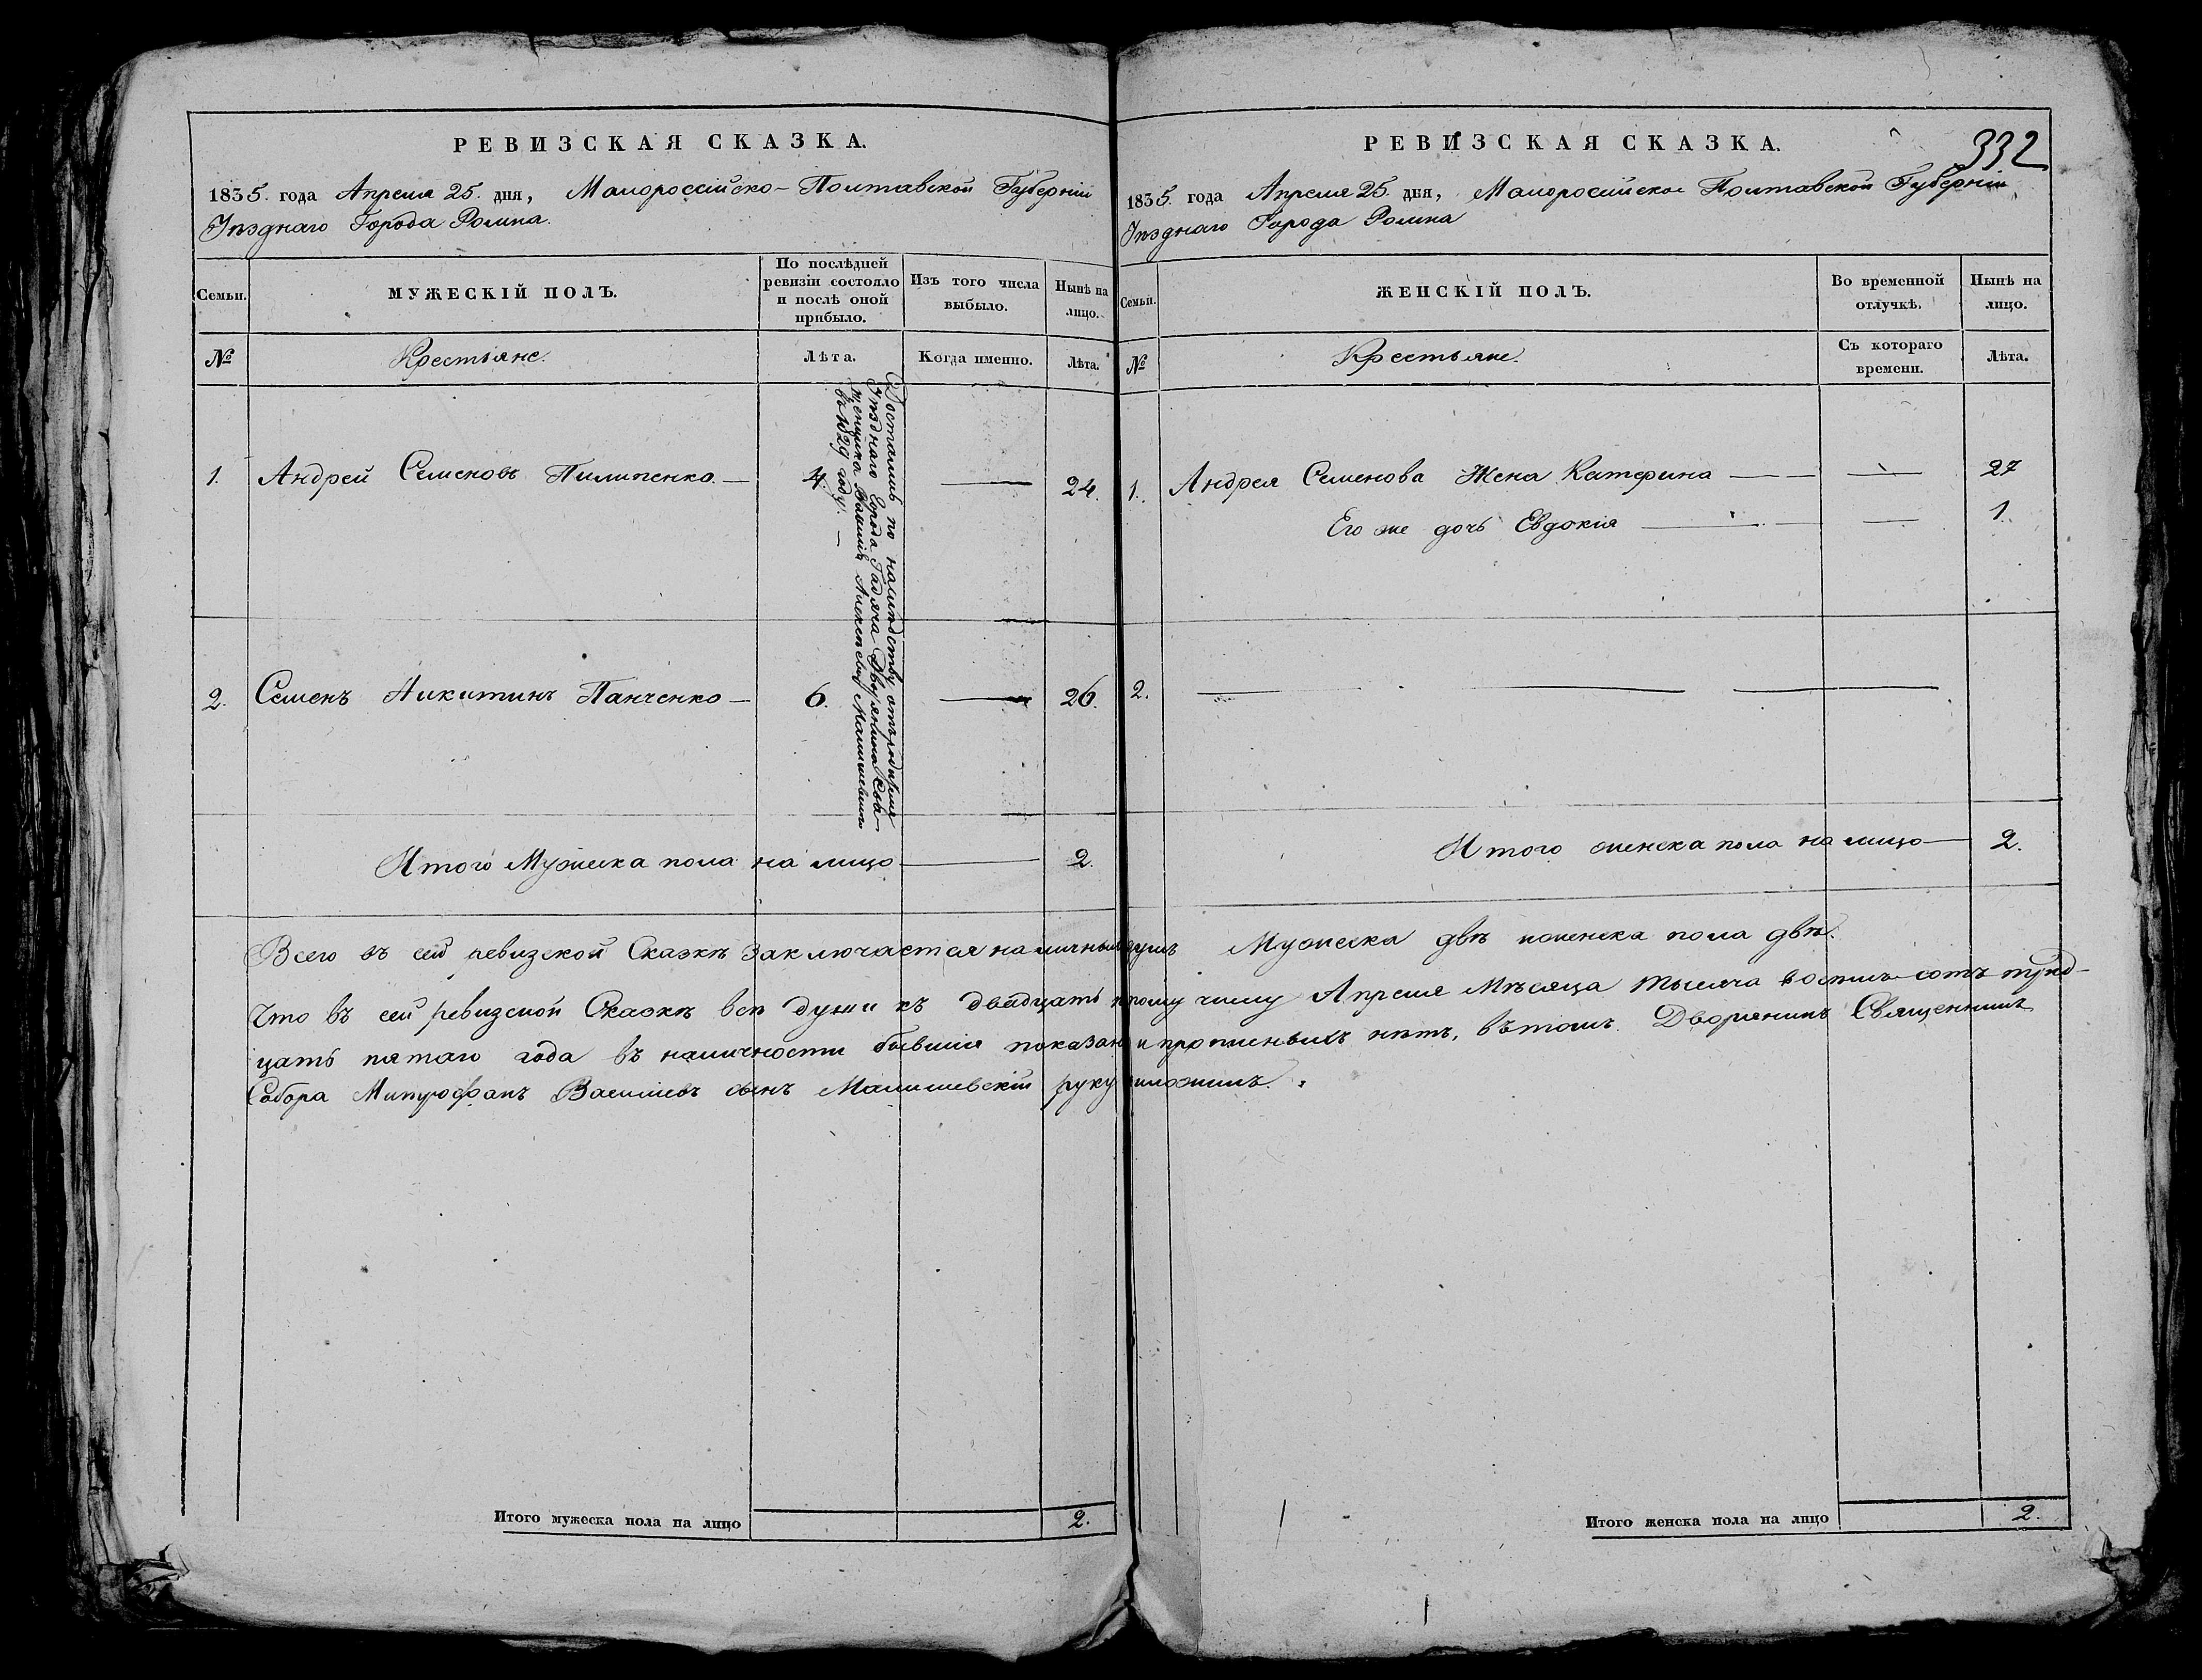 РЕВИЗСКАЯ СКАЗКА.
1835. года Апреля 25. дня, Малороссійско-Полтавской Губерніи
Уѣзднаго Города Ромна.
Семьи.
МУЖЕСКІЙ ПОЛЪ.
По послѣдней
ревизіи состояло
и послѣ оной
прибыло.
Изъ того числа
выбыло.
Нынѣ на
лицо.
№
Крестьяне.
Лѣта.
Когда именно.
Лѣта.
1. Андрей Семеновъ Пилипенко — 4. — 24.
2. Семенъ Никитинъ Панченко — 6. — 26.
Достались по наслѣдству отъ родителя
Уѣзднаго Города Гадяча Дворянина Свя-
щенника Василія Алексѣева Малишевскаго
въ 1829 году. —
Итого Мужеска пола на лицо — 2.
РЕВИЗСКАЯ СКАЗКА.
332
1835. года Апреля 25. дня, Малоросійско Полтавской Губерніи
Уѣзднаго Города Ромна
Семьи.
ЖЕНСКІЙ ПОЛЪ.
Во временной
отлучкѣ.
Нынѣ на
лицо.
№
Крестьяне.
Съ котораго
времени.
Лѣта.
1. Андрея Семенова Жена Катерина — — — 27
Его же дочь Евдокія — — 1.
2. — — —
Итого женска пола на лицо — 2.
Всего въ сей ревизской Сказкѣ Заключается наличныхъ душъ Мужеска двѣ иженска пола двѣ.
Что въ сей ревизской Сказкѣ всѣ души къ двадцать пятому числу Апреля Мѣсяца тысяча восемь сотъ трид-
цать пятаго года въ наличности бывшія показаны и прописныхъ нѣтъ, вътомъ Дворянинъ Священникъ
Собора Митрофанъ Васильевъ сынъ Малишевскій руку приложилъ.
Итого мужеска пола на лицо 2.
Итого женска пола на лицо 2.